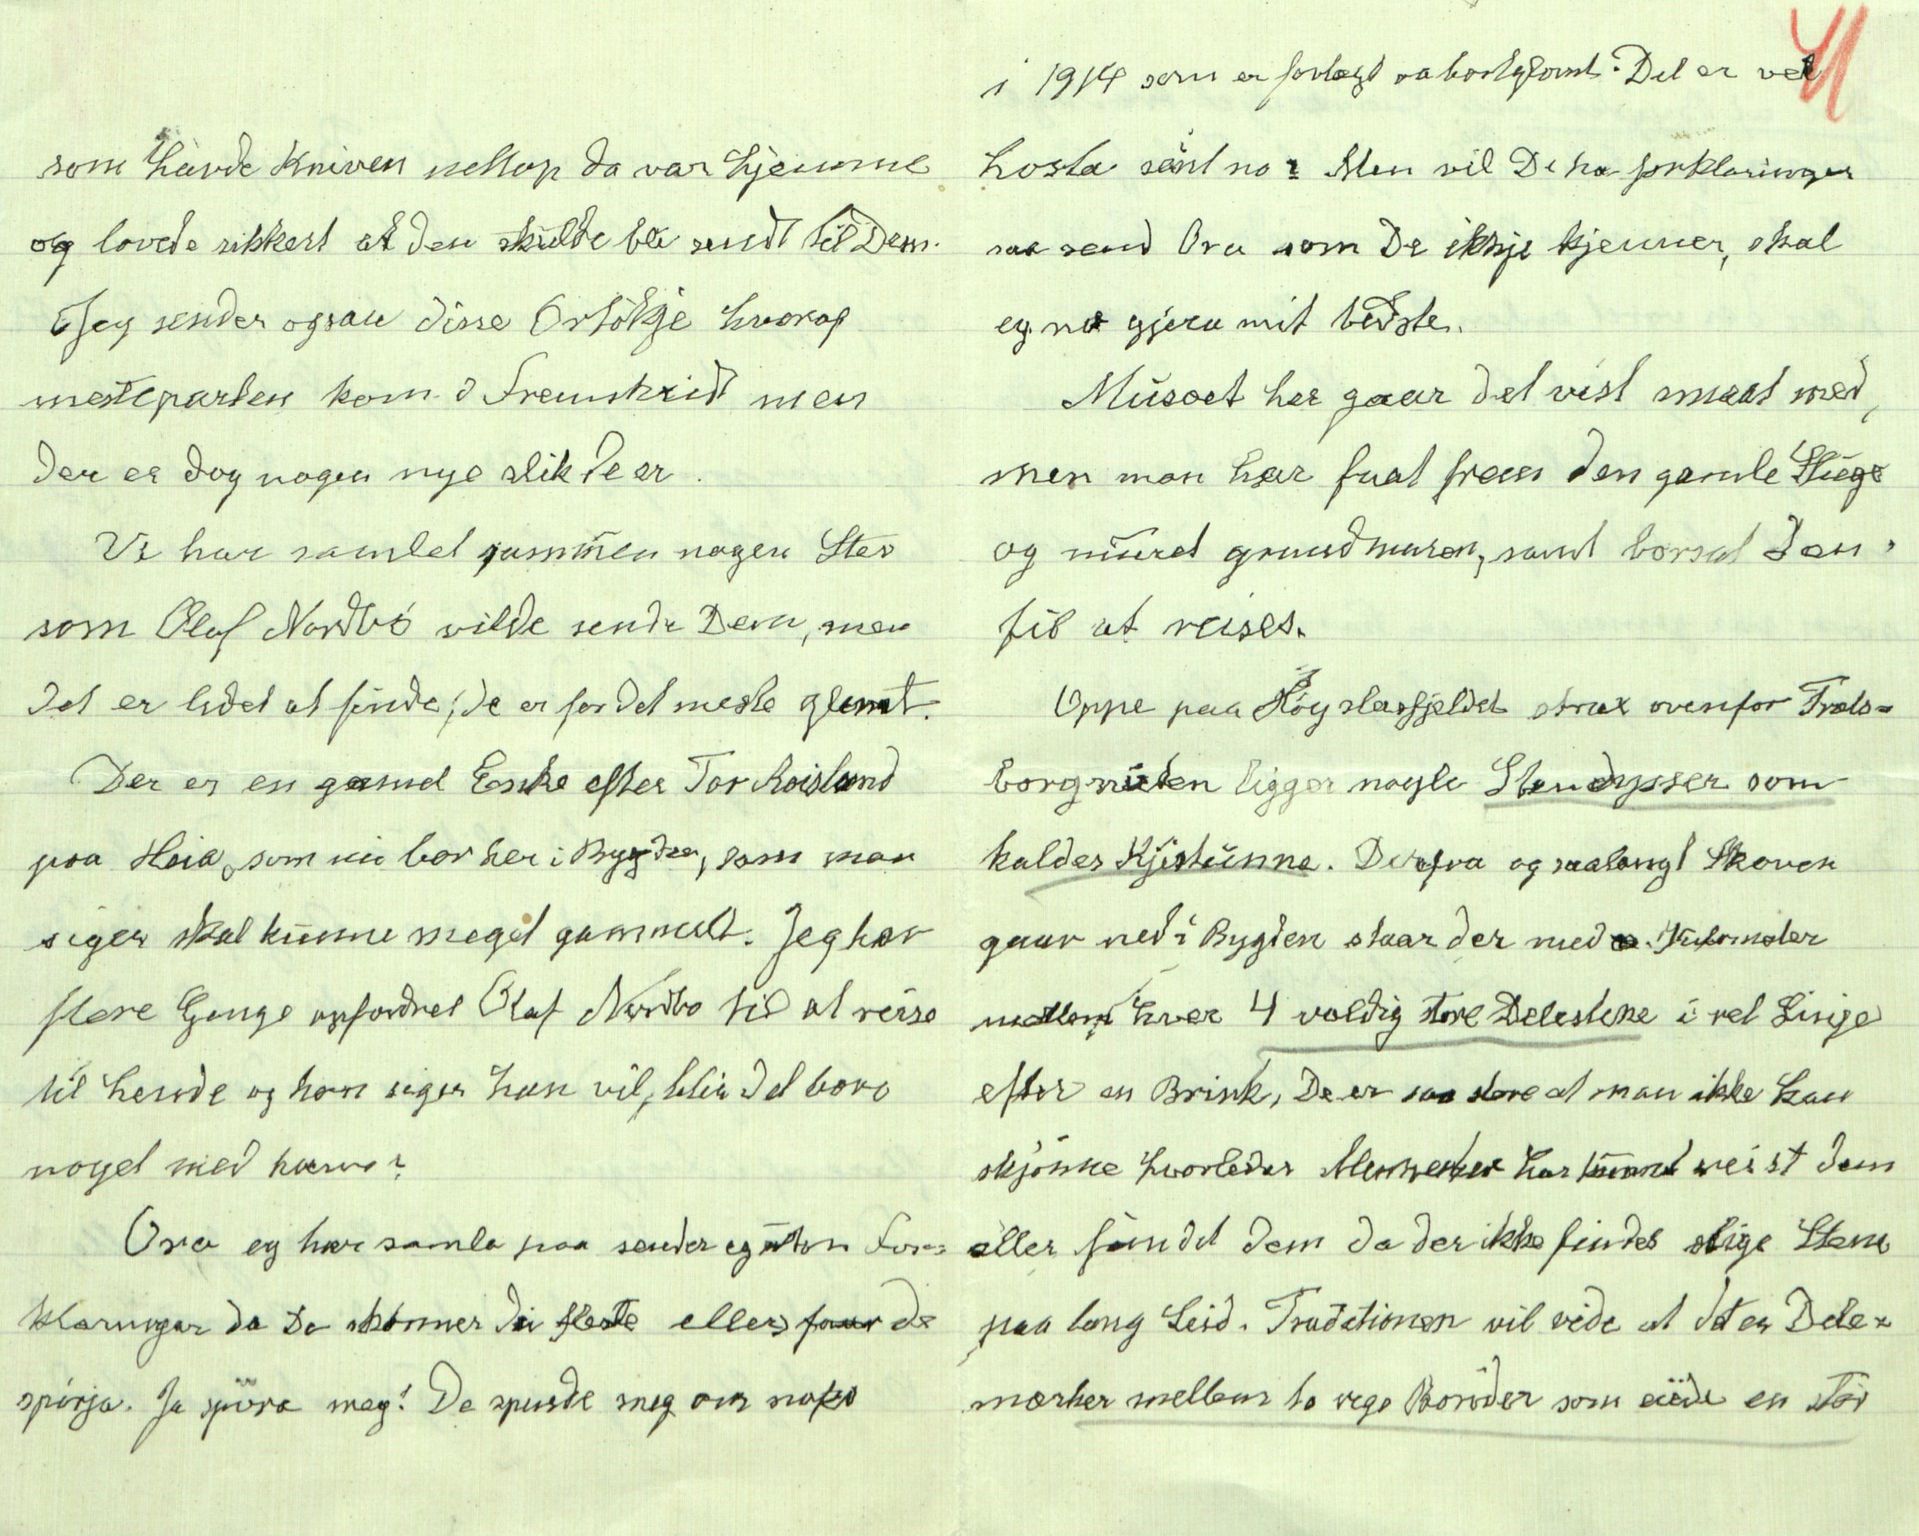 som havde Kniven nettop da var hjemme
og lovede sikkert at den skulde bli sendt til Dem.
Jeg sender ogsaa disse Ortökje hvoraf
mesteparten kom i Fremskrid men
der er dog nogen nye slik de er.
Vi har samlet sammen nogen Stev
som Olaf Nordbö vilde sende Dem, men
det er lidet at finde; de er for det meste glemt.
Der er en gammel Enke efter Tor Roisland
paa Heia, som nu bor her i Bygden, som man
siger skal kunne meget gammelt. Jeg har
flere Gange opfordret Olaf Nordbo til at reise
til hende og han siger han vil, blir det bare
noget med
Ora eg har samla paa sender eg uton For=
klaringar da De skönner dei fleste ellers faar de
spörja. Ja spöra meg! De spurde meg om noko
i 1914 som er forlagt aa bortglömt. Det er vel
hosta sänt no? Men vil De ha forklaringer
saa send Ora som De ikkje kjenner, skal
eg no gjera mit bedste.
Museet her gaar det vist smaat med,
men man har faat frem den gamle Stuge
og muret grundmuren, samt den
til at reises.
Oppe paa Höyslasfjeldet strax ovenfor Træls=
borgnuten ligger nogle Stendysser som
kaldes Kjistunne. Derfra og saalangt Skoven
gaar ned i Bygden staar der med Kilometer
mellem hver 4 voldig store Delestene i ret Linge
efter en Brink, De er saa store at man ikke kan
skjönne hvorledes Mennesker har kunnet reist dem
eller fundet dem da der ikke findes slige Stene
paa lang Leid. Traditionen vil vide at det er Dele=
mærker mellem to rege Boröder som eiede en stor